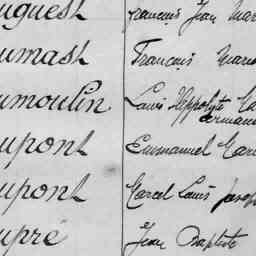 uguest François Jean Mari
umast François Marie
umoulin Louis Hippolyte
Germain
upont Emmanuel Mari
upont Marcel Louis Josep
upré Jean Baptiste